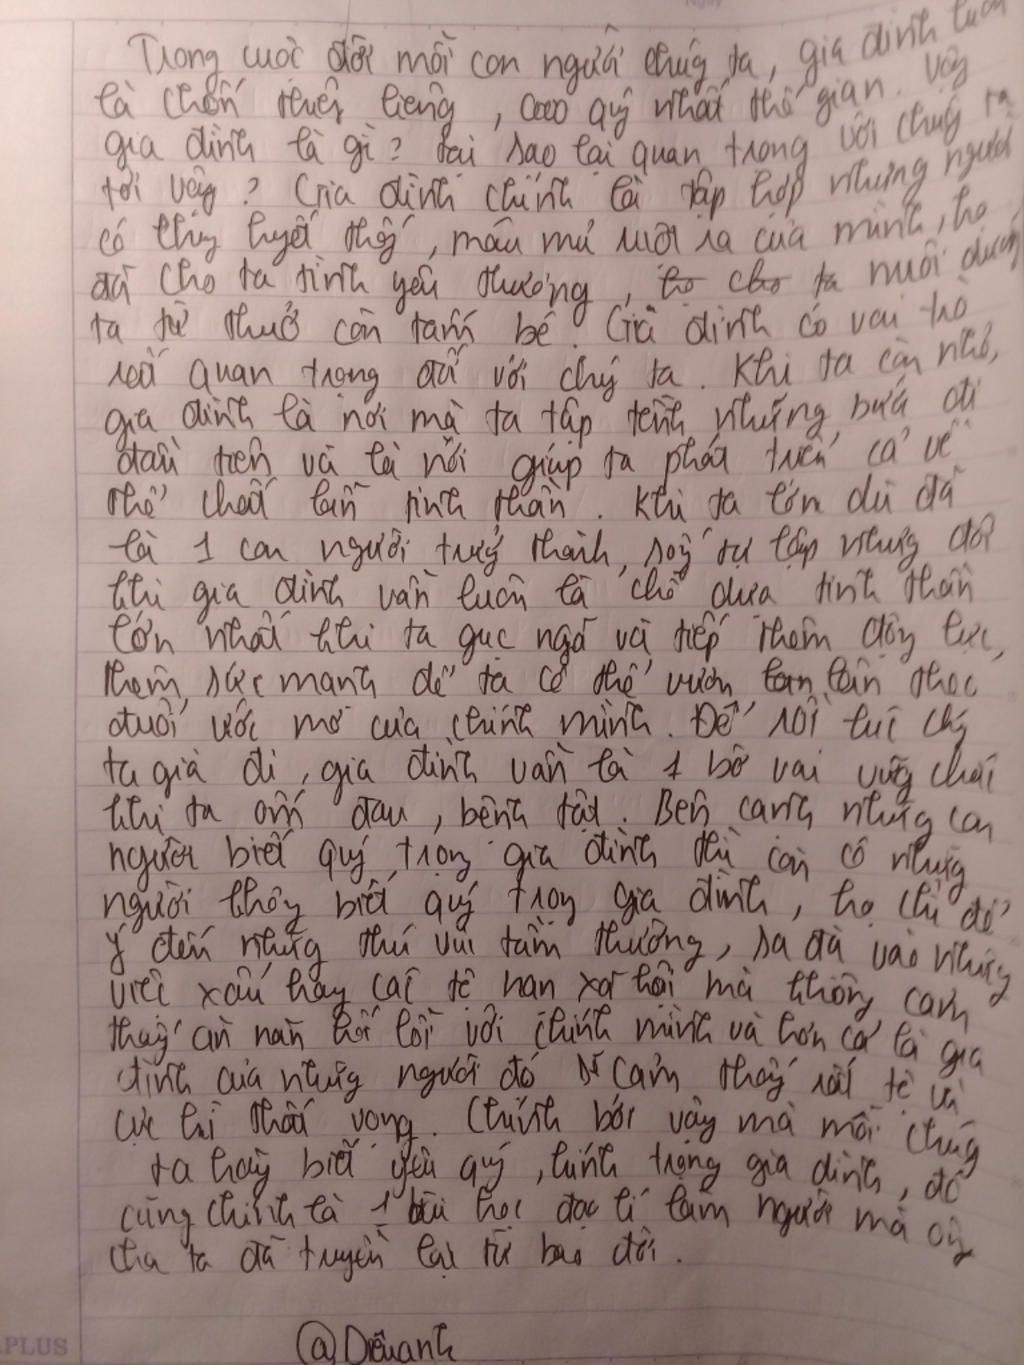 Trong cuộc đời mỗi con người chúng ta, gia đình luôn
là chốn thiêng liêng, cao quý nhất thế gian. Vậy
gia đình là gì? tại sao lại quan trọng với chúng ta
tới vậy? Gia đình chính là tập hợp những người
có cùng huyết thống, máu mủ ruột rà của mình, họ
đã cho ta tình yêu thương, họ cho ta nuôi dưỡng
ta từ thuở còn tấm bé. Gia đình có vai trò
rất quan trọng đối với chúng ta. Khi ta còn nhỏ,
gia đình là nơi mà ta tập tễnh những bước đi
đầu tiên và là nơi giúp ta phát triển cả về
thể chất lẫn tinh thần. Khi ta lớn dù đã
là 1 con người trưởng thành, sống tự lập nhưng đôi
khi gia đình vẫn luôn là chỗ dựa tinh thần
lớn nhất khi ta gục ngã và tiếp thêm động lực,
thêm sức mạnh để ta có thể vươn lên theo
đuổi ước mơ của chính mình. Để rồi lúc chúng
ta già đi, gia đình vẫn là 1 bờ vai vững chãi
khi ta ốm đau, bệnh tật. Bên cạnh những con
người biết quý trọng gia đình thì còn có những
người không biết quý trọng gia đình, họ chỉ để
ý đến những thú vui tầm thường, sa đà vào những
việc xấu hay các tệ nạn xã hội mà không cảm
thấy ăn năn hối lỗi với chính mình và hơn cả là gia
đình của những người đó cảm thấy rất tệ và
cực kì thất vọng. Chính bởi vậy mà mỗi chúng
ta hãy biết yêu quý, kính trọng gia đình, đó
cũng chính là 1 bài học đạo lí làm người mà ông
cha ta đã truyền lại từ bao đời.
@Diêuanh
PLUS